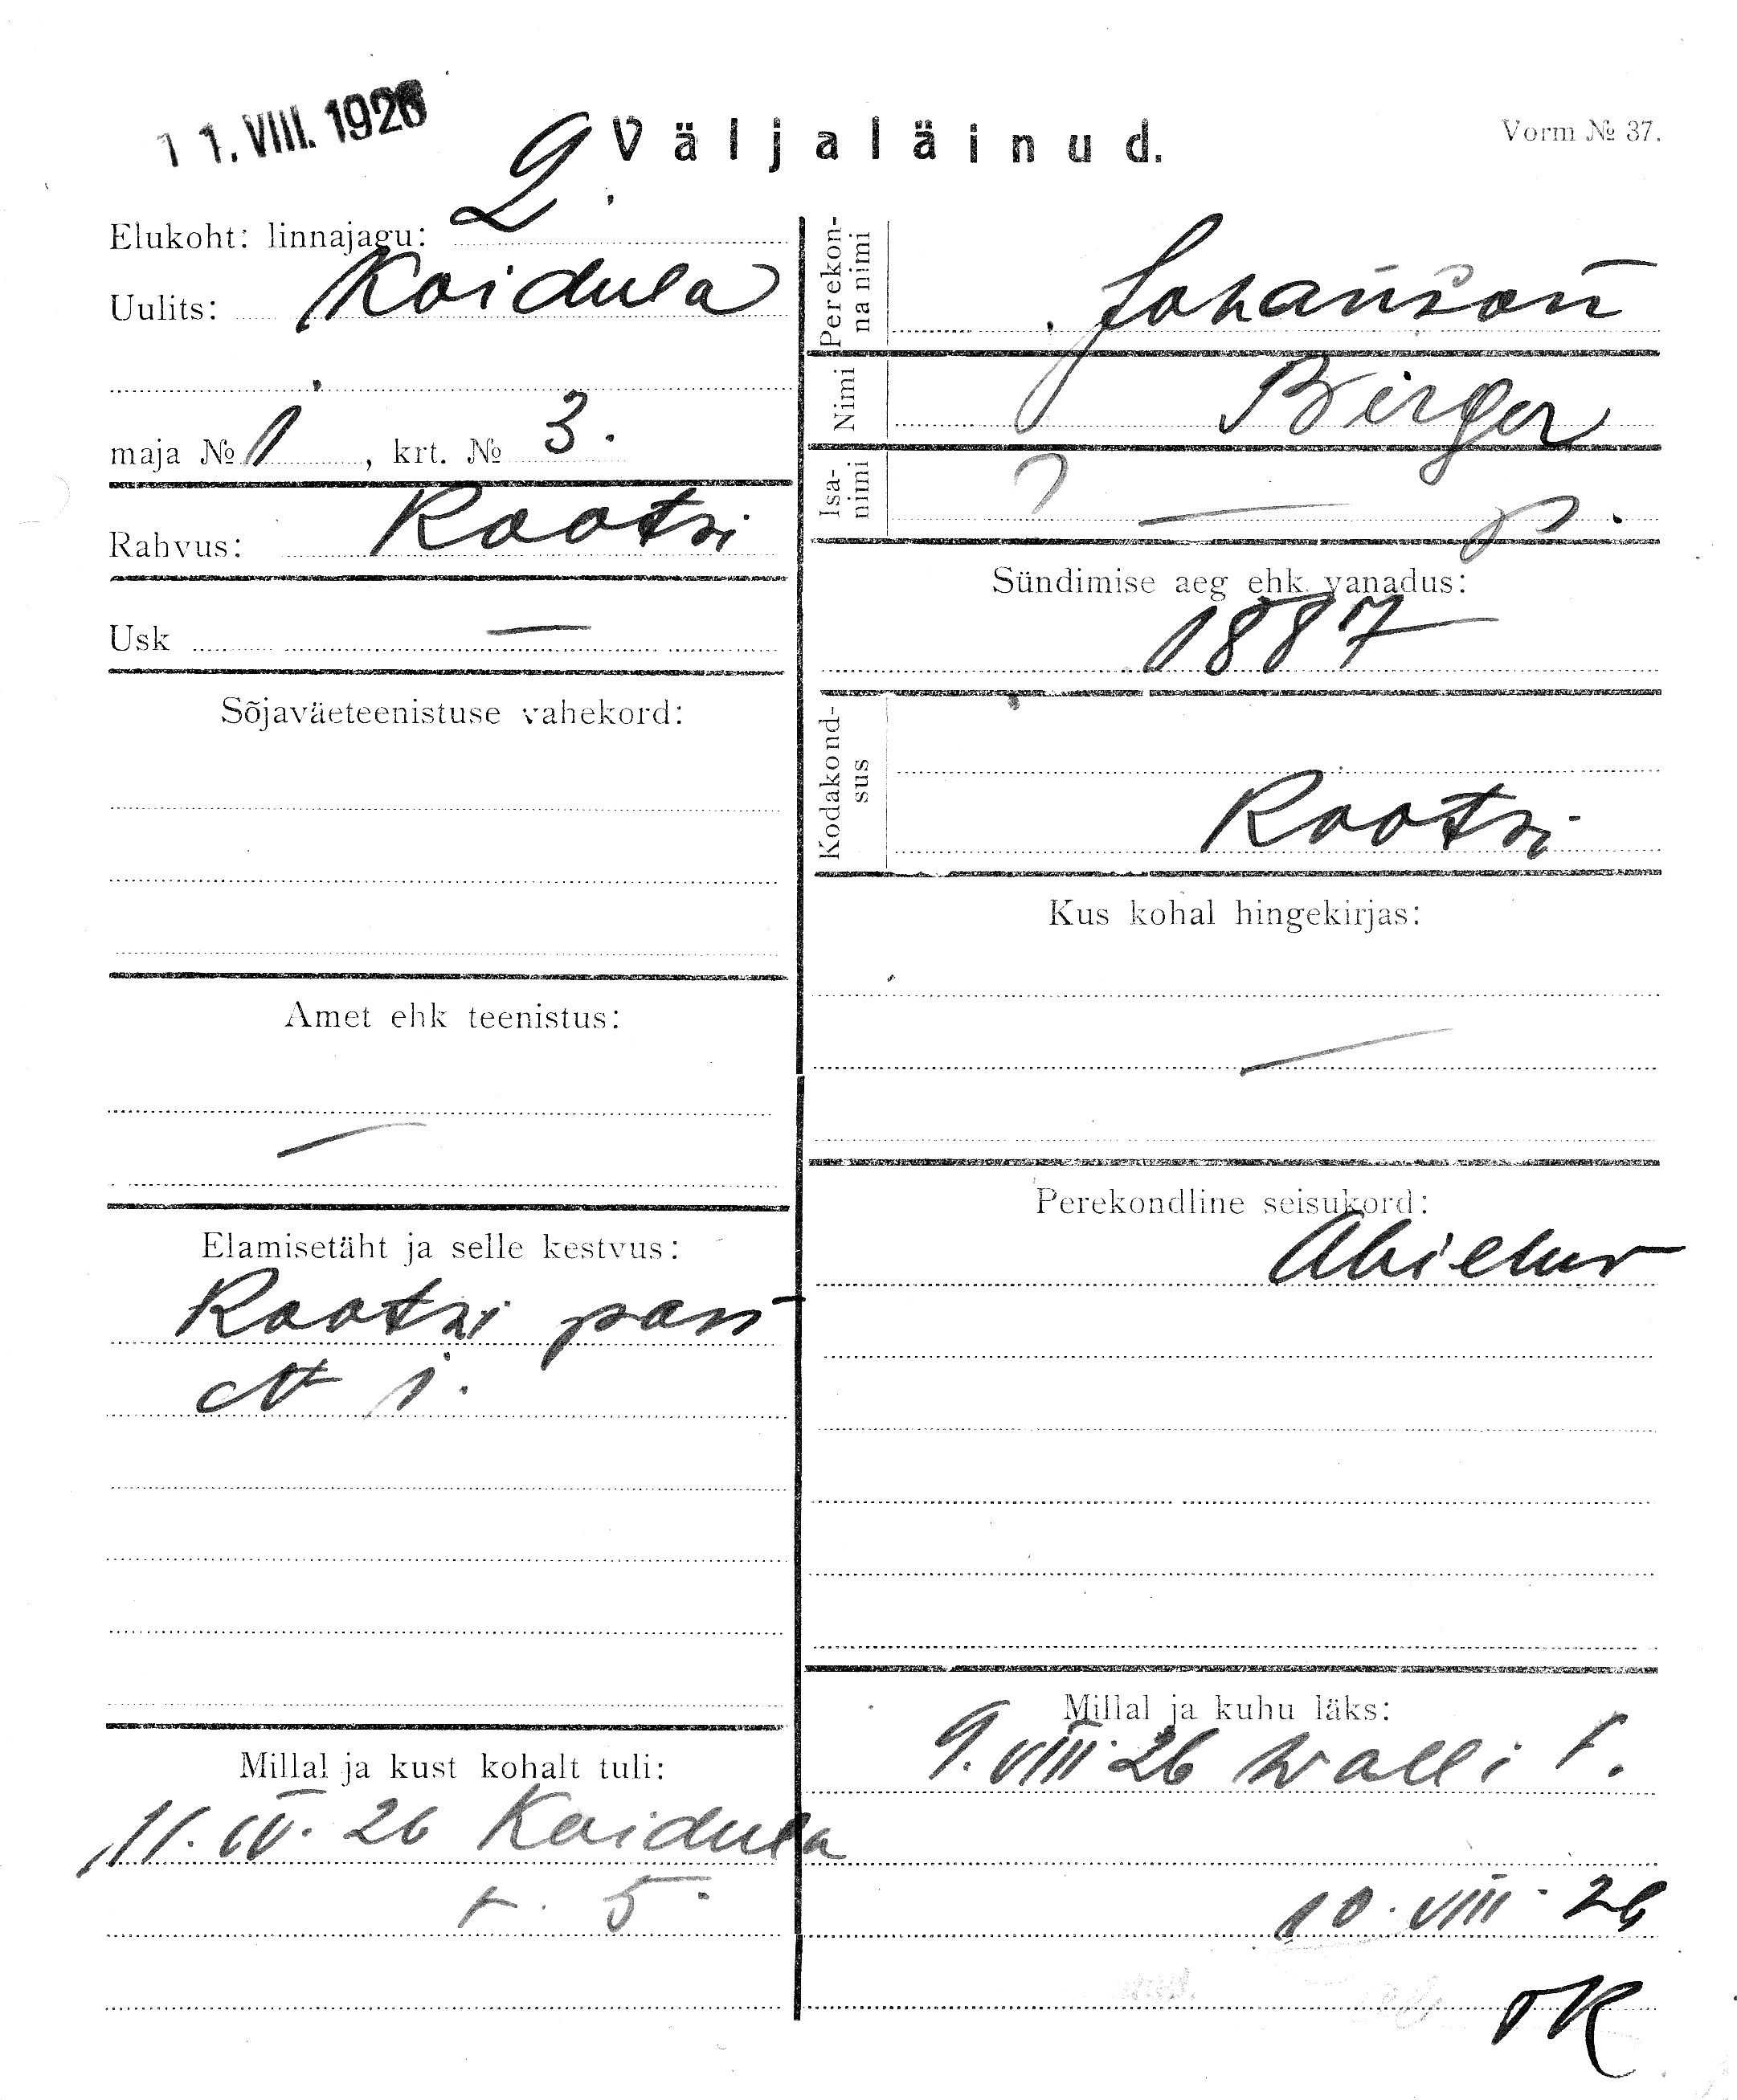 11. VIII. 1926
Väljaläinud.
Vorm № 37.
Elukoht: linnajagu: 2.
Uulits: Koidula
maja № 1, krt. № 3.
Rahvus: Rootsi
Usk —
Sõjaväeteenistuse vahekord:
Amet ehk teenistus:
—
Elamisetäht ja selle kestvus:
Rootsi pass
№ 1.
Millal ja kust kohalt tuli:
11. IV. 26 Koidula
t. 5.
Perekonna nimi
Johanson
Nimi
Birger
Isanimi
— p.
Sündimise aeg ehk vanadus:
1887
Kodakondsus
Rootsi
Kus kohal hingekirjas:
—
Perekondline seisukord:
Abielus
Millal ja kuhu läks:
9. VIII 26 Walli t.
10. VIII 26